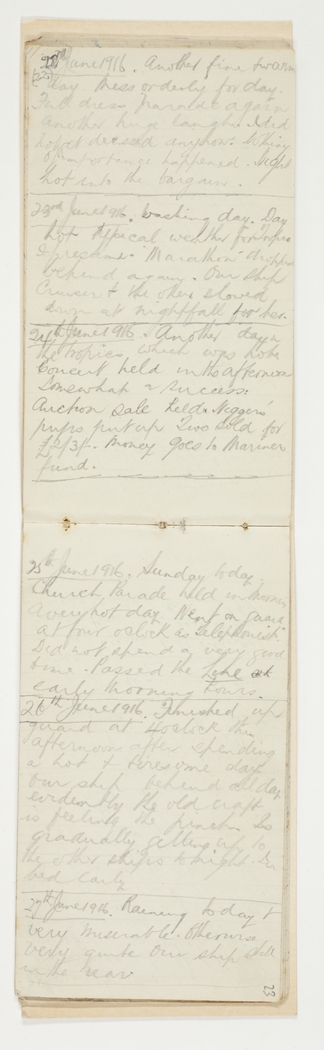 22nd June 1916. Another fine warm
day. Mess orderly for day.
Full dress parade again
another huge laugh. Did
not get dressed anyhow. Nothing
of importance happened. Night
hot into the bargain.
23rd June 1916. Washing day. Day
hot. Typical weather for tropics
I presume. "Marathon" dropped
behind again. Our ship
Cruiser & the other slowed
down at nightfall for her.
24th June 1916. Another day in
the tropics which was hot.
Concert held in the afternoon
somewhat a success.
Auction sale held.
pups put up. Two sold for
£2/3/-. Money goes to Mariners
fund.
25th June 1916. Sunday today.
Church Parade held in morn
A very hot day. Went on guard
at four oclock as telephonist.
Did not spend a very good
time. Passed the Line at
early morning hours.
26th June 1916. Finished up
guard at 4 oclock this
afternoon after spending
a hot & tiresome day.
Our ship behind all day
evidently the old craft
is feeling the pinch. Is
gradually getting up to
the other ships tonight. In
bed early.
27th June 1916. Raining today &
very miserable. Otherwise
very quite. Our ship still
in the rear.
23